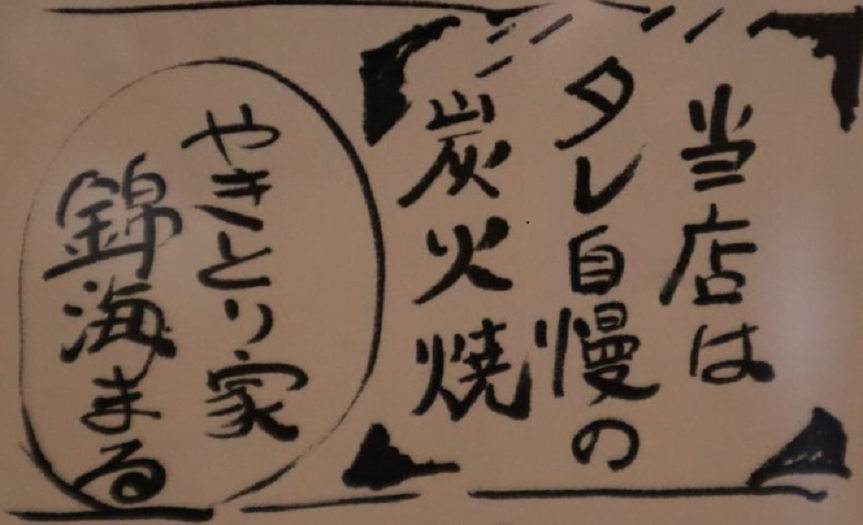 当店は
タレ自慢の
炭火焼
やきとり家
錦海まる